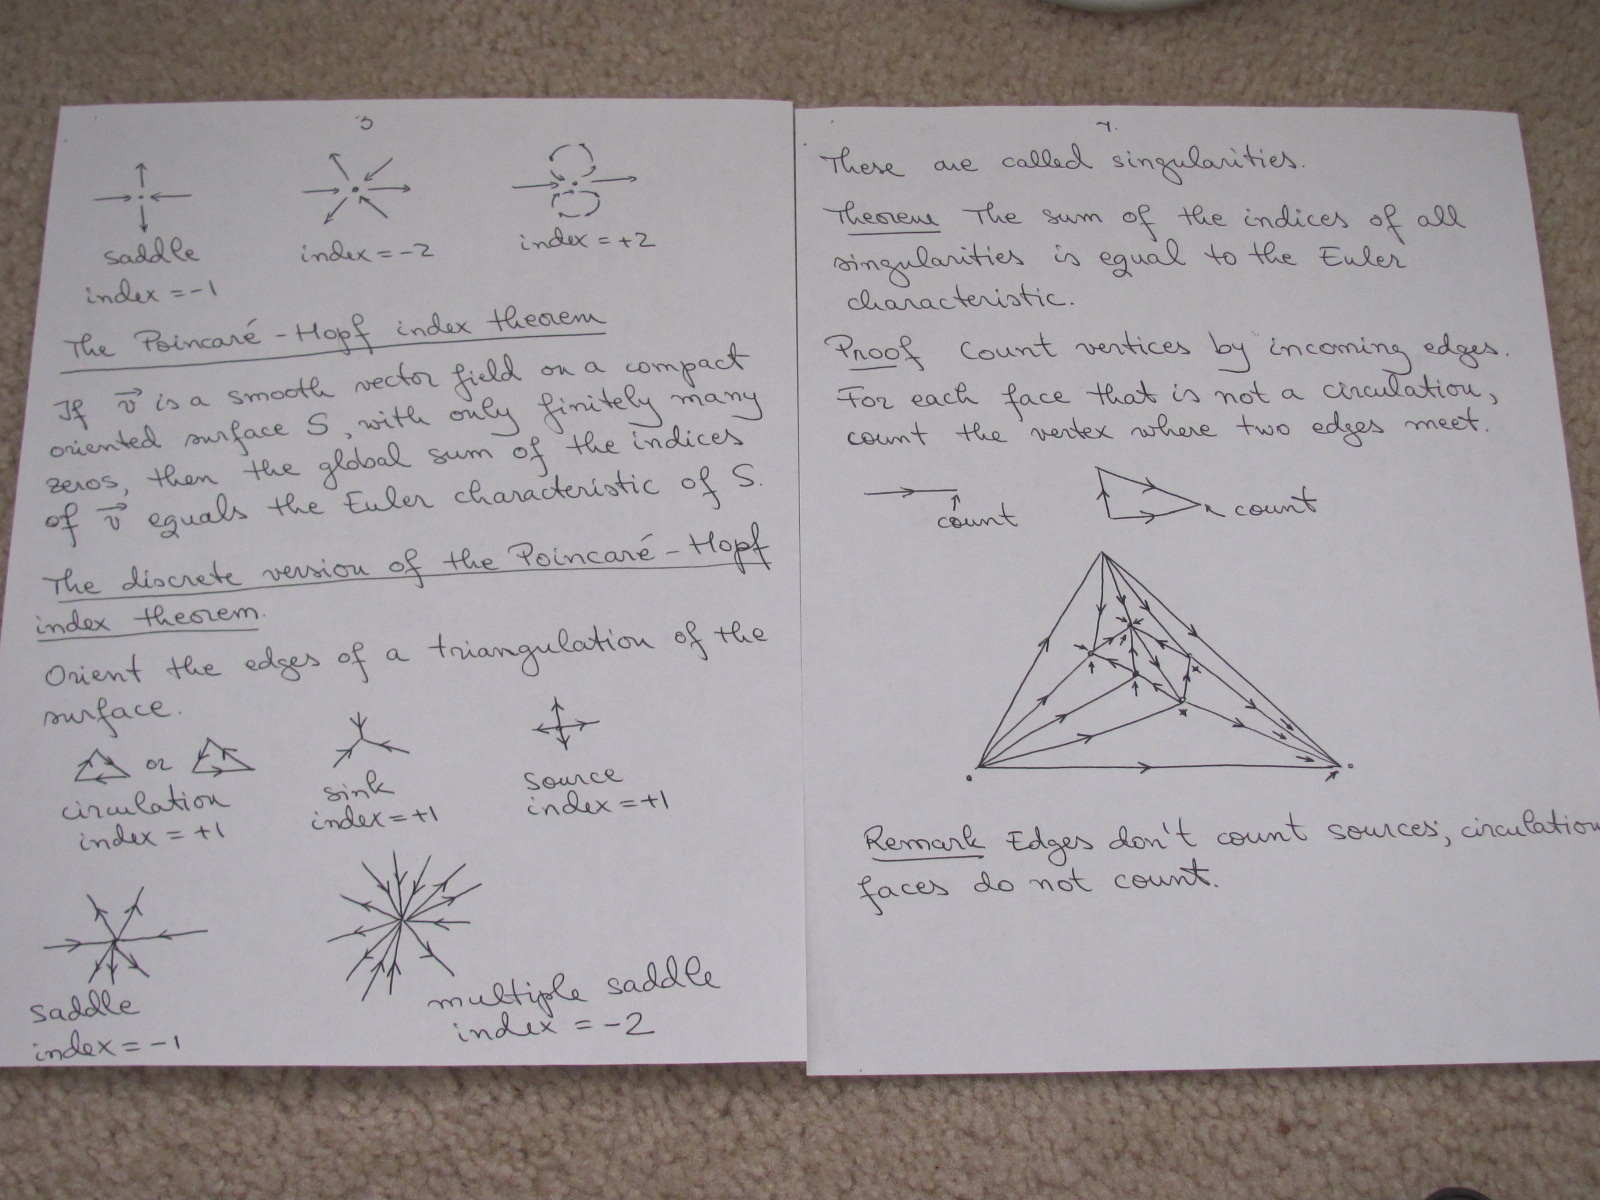 3
saddle
index = -1
index = -2
index = +2
The Poincaré - Hopf index theorem
If v⃗ is a smooth vector field on a compact
oriented surface S, with only finitely many
zeros, then the global sum of the indices
of v⃗ equals the Euler characteristic of S.
The discrete version of the Poincaré - Hopf
index theorem.
Orient the edges of a triangulation of the
surface.
or
circulation
index = +1
sink
index = +1
source
index = +1
saddle
index = -1
multiple saddle
index = -2
These are called singularities.
Theorem The sum of the indices of all
singularities is equal to the Euler
characteristic.
Proof Count vertices by incoming edges.
For each face that is not a circulation,
count the vertex where two edges meet.
count
count
Remark Edges don't count sources; circulation
faces do not count.